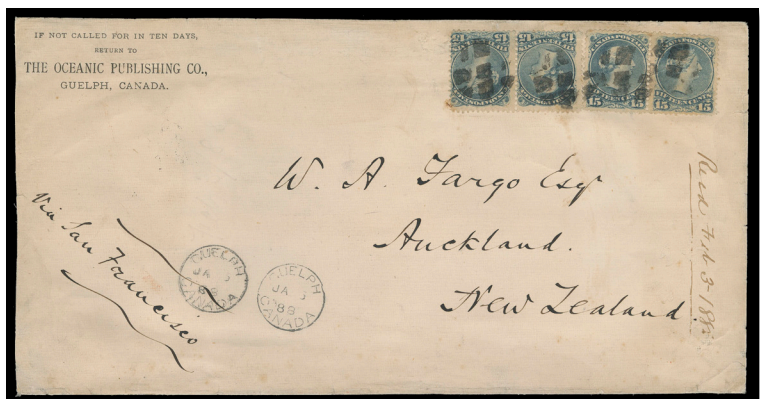 IF NOT CALLED FOR IN TEN DAYS,
RETURN TO
THE OCEANIC PUBLISHING CO.,
GUELPH, CANADA.
15 15
15 15
CANADA POSTAGE
15 15
FIFTEEN CENTS
15
W. A. Fargo Esqr
Auckland.
New Zealand.
Via San Francisco
GUELPH
JA
88
CANADA
GUELPH
JA
88
CANADA
Recd Feb 3 - 188